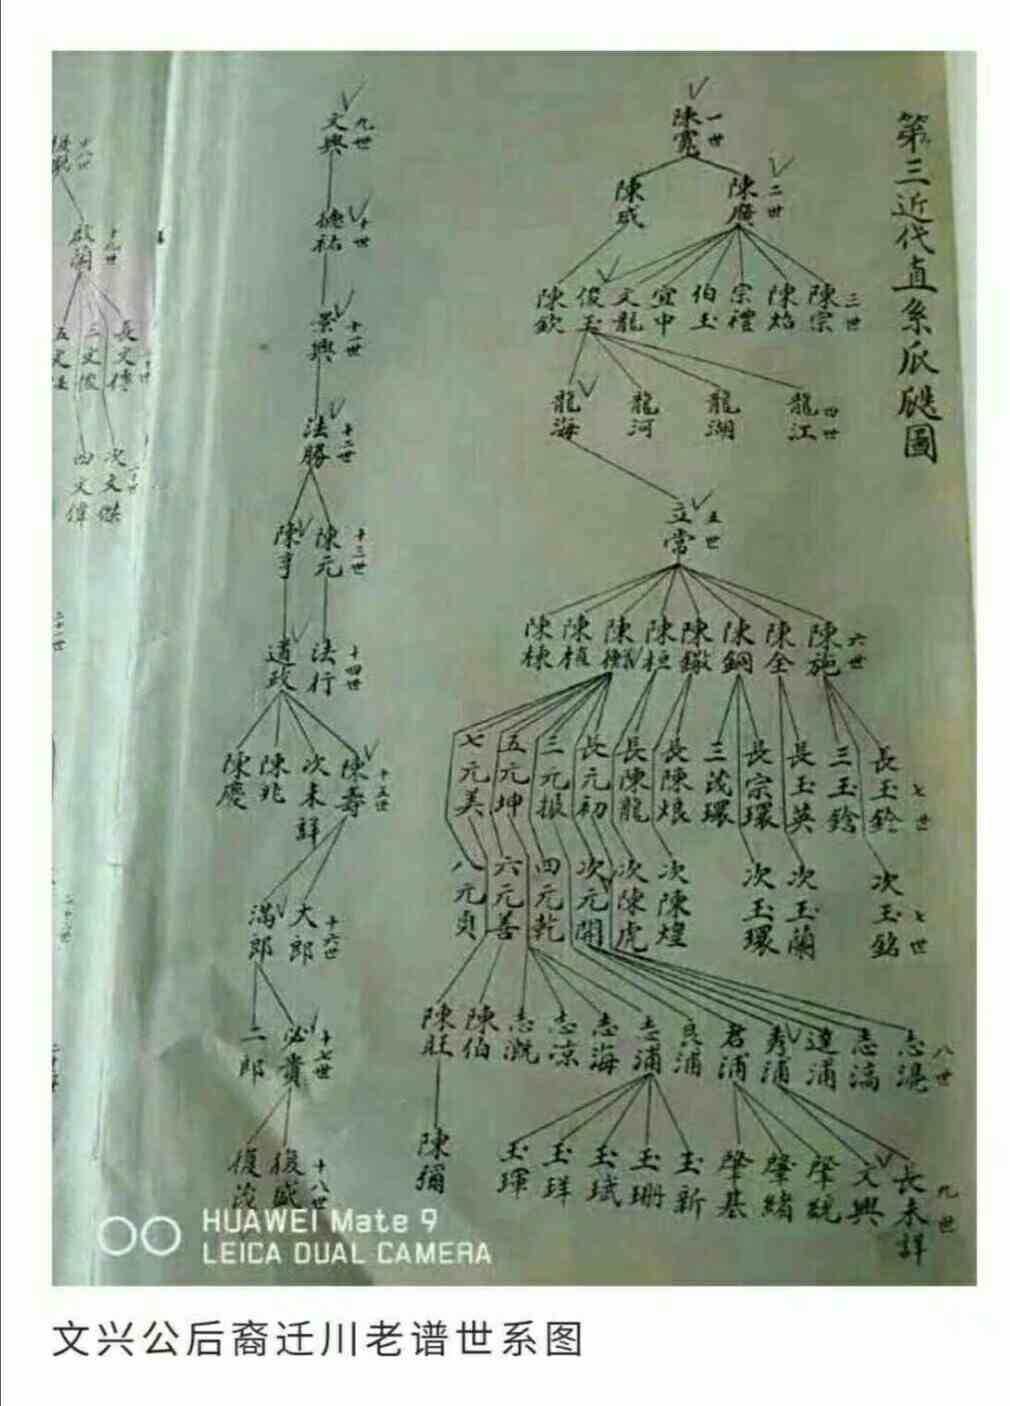 第三近代直系瓜瓞圖
一世
陳寬
二世
陳廣
陳成
三世
陳宗
陳焰
宗禮
伯玉
宜中
文龍
俊玉
陳欽
四世
龍江
龍湖
龍河
龍海
五世
立常
六世
陳施
陳全
陳鋼
陳鏾
陳桓
陳衡
陳楨
陳棟
七世
長玉鈴
三玉鎗
長玉英
長宗環
三茂環
長陳烺
長陳龍
長元初
三元振
五元坤
七元美
七世
次玉銘
次玉蘭
次玉環
次陳煌
次陳虎
次元開
四元乾
六元善
八元貞
八世
志湜
志滈
達浦
秀浦
君浦
良浦
志浦
志海
志凉
志溉
陳伯
陳旺
九世
長未詳
文興
肇統
肇緒
肇基
玉新
玉珊
玉斌
玉祥
玉琿
陳彌
九世
文興
十世
德祐
十一世
景興
十二世
法勝
十三世
陳元
陳亨
十四世
法行
道政
十五世
陳壽
次未詳
陳兆
陳慶
十六世
大郎
滿郎
十七世
必貴
二郎
十八世
復盛
十九世
啟蘭
長文傳
三文俊
次文傑
四文偉
HUAWEI Mate 9
LEICA DUAL CAMERA
文兴公后裔迁川老谱世系图